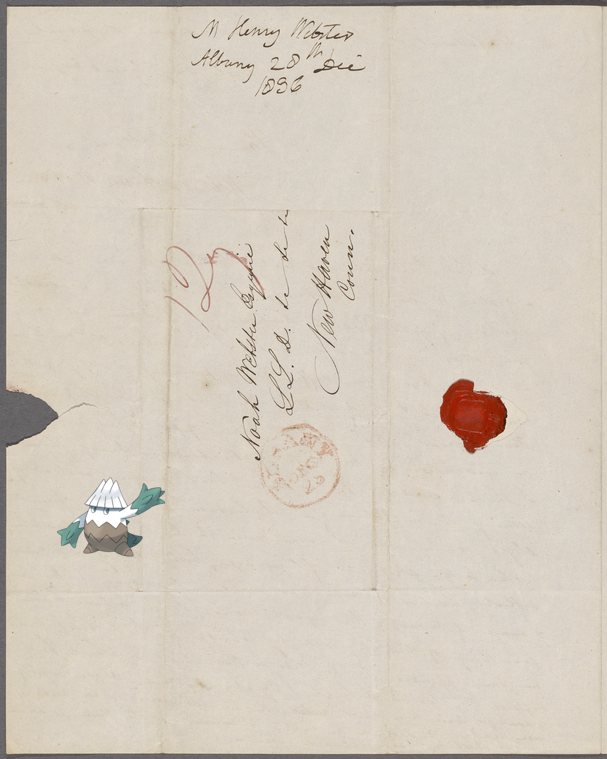 M Henry Webster
Albany 28th Dec
1836
Noah Webster Esquire
LL. D. &c &c &c
New Haven
Conn.